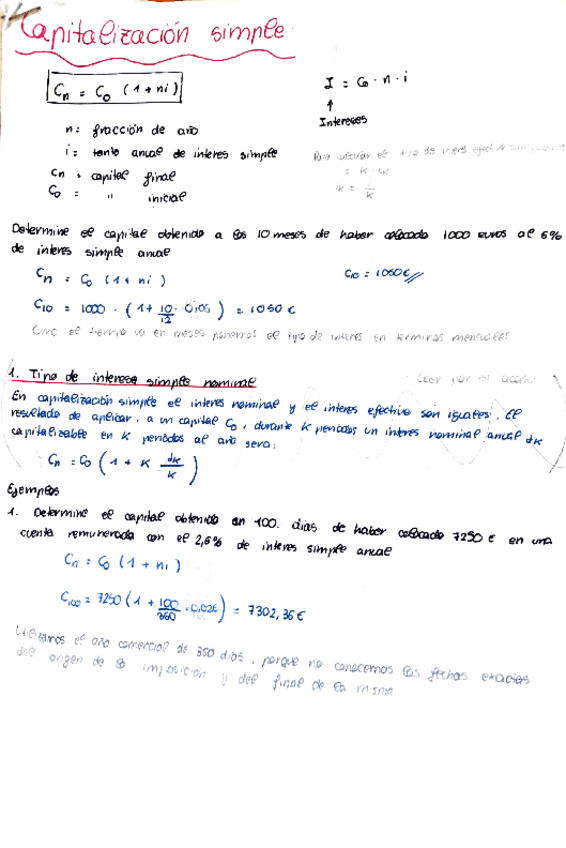 Capitalización simple
Cn = Co (1 + ni)
I = Co · n · i
↑
Intereses
n: fracción de año
i: tanto anual de interes simple
Cn = capital final
Co = " inicial
Para calcular el tipo de interes
= K · ik
ik = i/k
Determine el capital obtenido a los 10 meses de haber colocado 1000 euros al 6%
de interes simple anual
Cn = Co (1 + ni)
C10 = 1050 €
C10 = 1000 · (1 + 10/12 · 0,06) = 1050 €
Como el tiempo va en meses ponemos el tipo de interes en terminos mensuales
1. Tipo de interese simple nominal
Leer por si acaso
En capitalización simple el interes nominal y el interes efectivo son iguales. El
resultado de aplicar, a un capital Co, durante K periodos un interes nominal anual dk
capitalizable en K periodos al año sera:
Cn = Co (1 + K dk/K)
Ejemplos
1. Determine el capital obtenido en 100. dias de haber colocado 7250 € en una
cuenta remunerada con el 2,6% de interes simple anual
Cn = Co (1 + ni)
C100 = 7250 (1 + 100/360 · 0,026) = 7302,36 €
Utilizamos el año comercial de 360 dias, porque no conocemos las fechas exactas
del origen de la imposición y del final de la misma